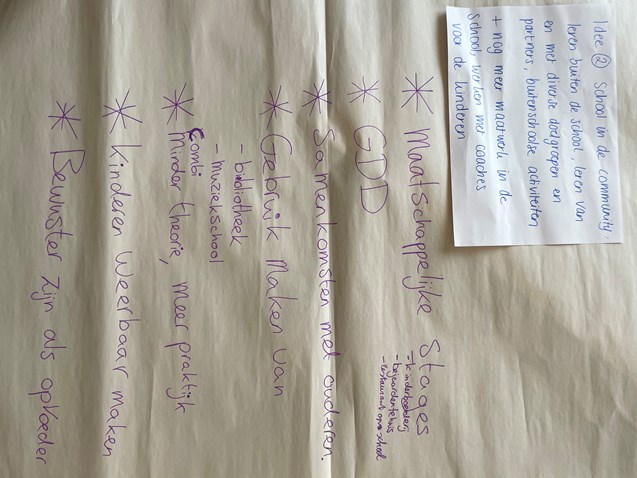 Idee ② School in de community.
leren buiten de school, leren van
en met diverse doelgroepen en
partners, buitenschoolse activiteiten
+ nog meer maatwerk in de
school, werken met coaches
voor de kinderen
* Maatschappelijke Stages
- kinderboerderij
- bejaardentehuis
- restaurant op school
* GDD
* Samenkomsten met ouderen.
* Gebruik Maken van
- bibliotheek
- muziekschool
Combi
* Minder theorie, meer praktijk
* Kinderen Weerbaar maken
* Bewuster zijn als opvoeder